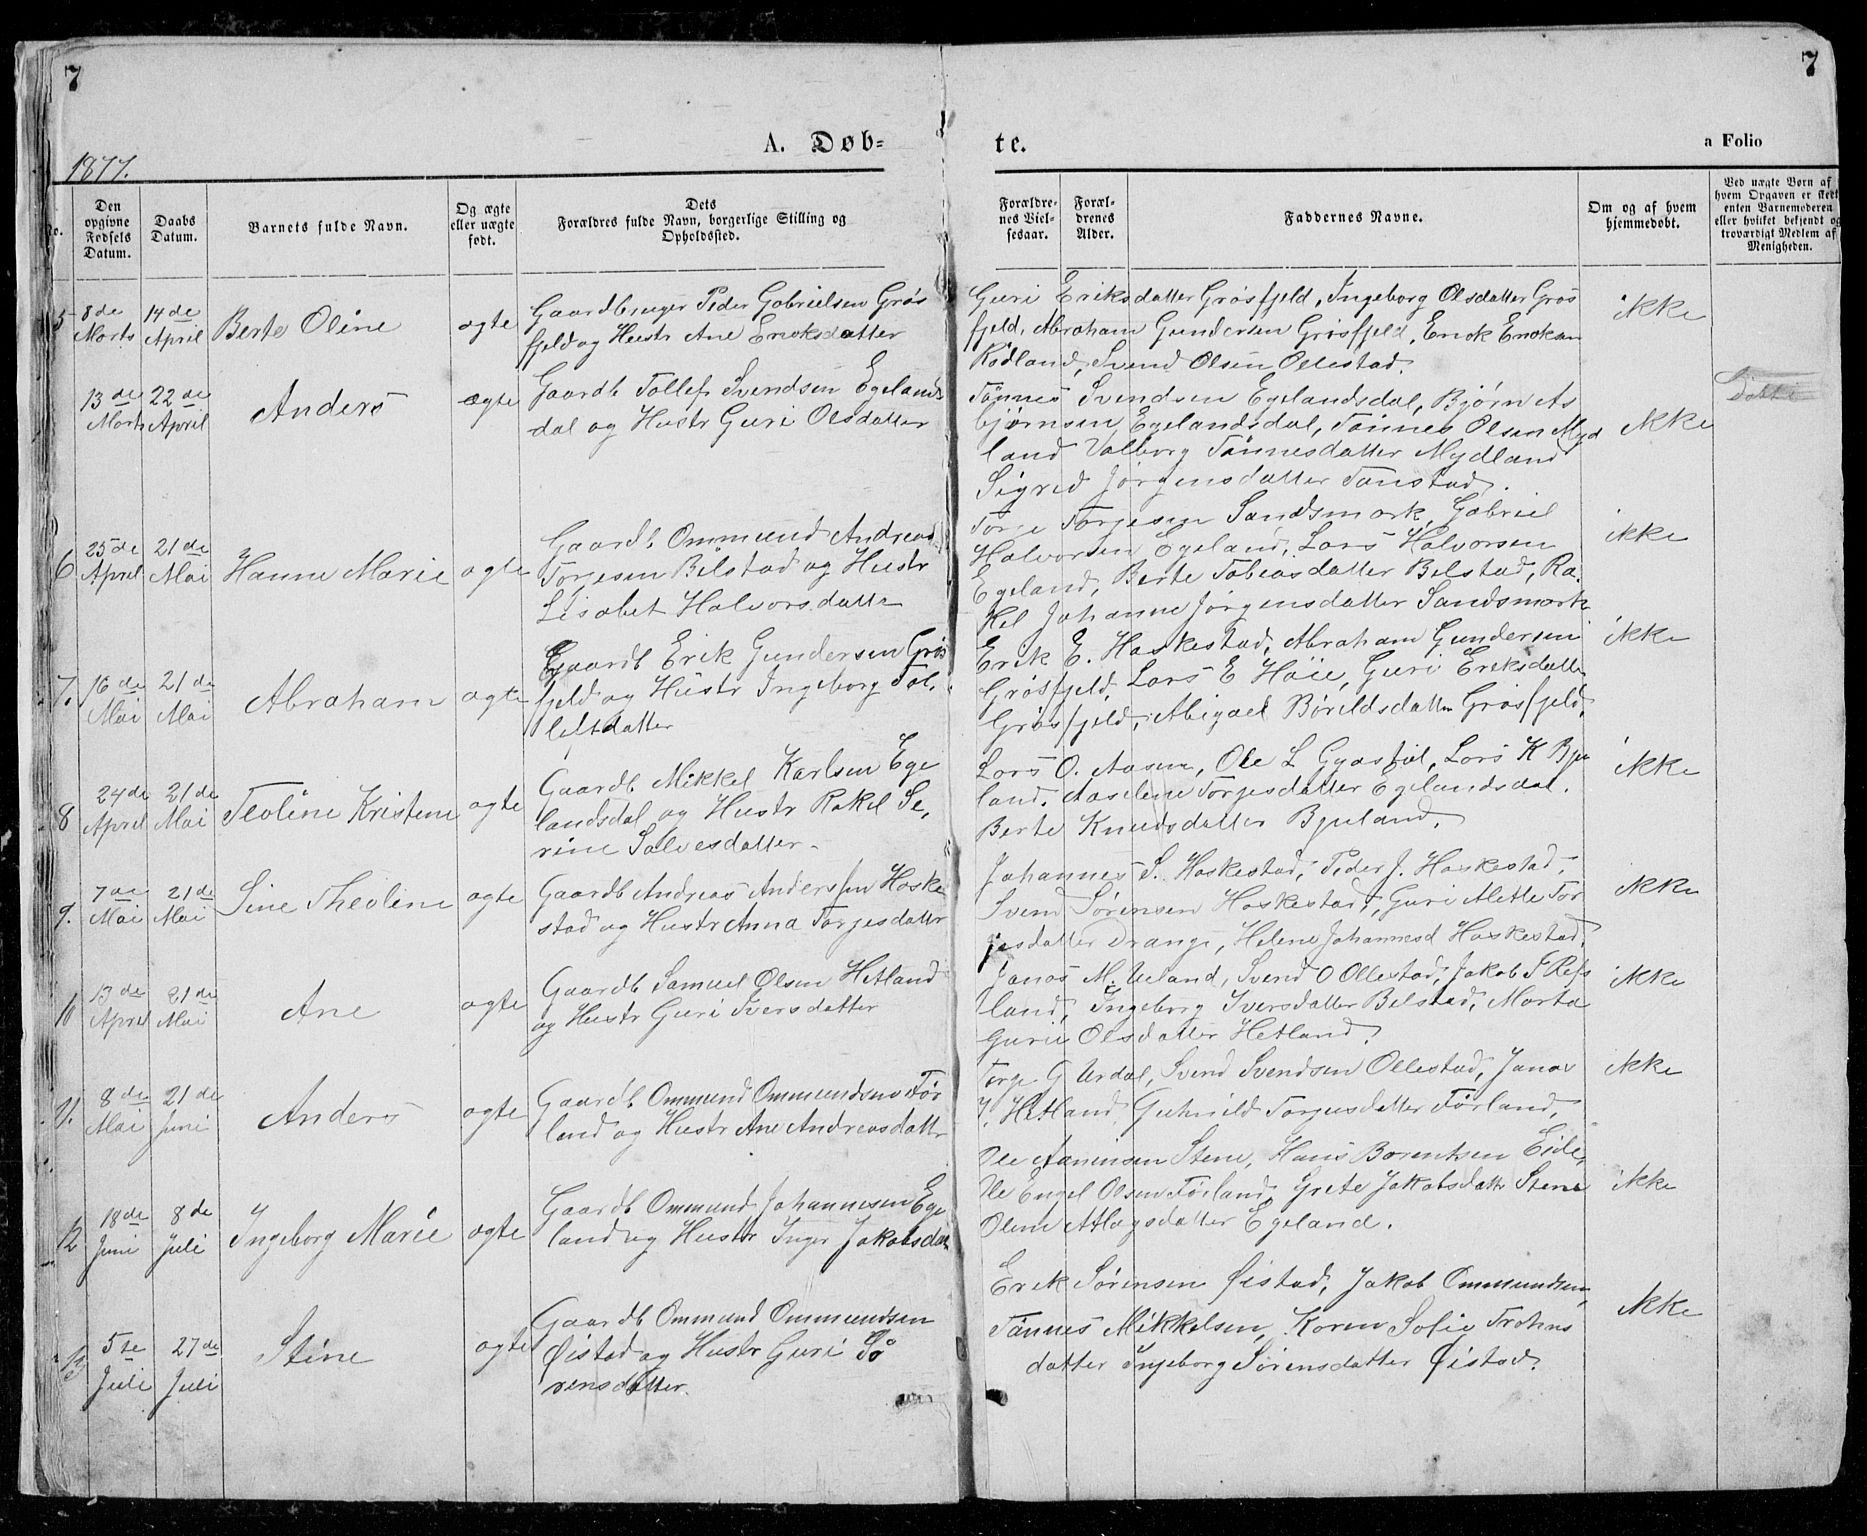 7
7
A. Døb=
te.
a Folio
1877.
No.
Den opgivne Fødsels Datum.
Daabs Datum.
Barnets fulde Navn.
Og ægte eller uægte født.
Dets Forældres fulde Navn, borgerlige Stilling og Opholdssted.
Forældrenes Vielsesaar.
Forældrenes Alder.
Faddernes Navne.
Om og af hvem hjemmedøbt.
Ved uægte Børn af hvem Opgaven er skeet enten Barnemoderen eller hvilket bekjendt og troværdigt Medlem af Menigheden.
5 8de Marts 14de April Berte Oline ægte
Gaardbruger Peder Gabrielsen Grøs
fjeld og Hustr Ane Eriksdatter
Guri Eriksdatter Grøsfjeld, Ingeborg Olsdatter Grøs
fjeld, Abraham Gundersen Grøsfjeld, Erick Ericksen
Rødland, Svend Olsen Ollestad.
ikke
13de Marts 22de April Anders ægte
Gaardb Tollef Svendsen Egelands
dal og Hustr Guri Olsdatter
Tønnes Svendsen Egelandsdal, Bjørn As
bjørnsen Egelandsdal, Tønnes Olsen Myd
land Valborg Tønnesdatter Mydland
Sigrid Jørgensdatter Tonstad.
ikke
6 25de April 21de Mai Hanne Marie ægte
Gaardb Ommund Andreas
Torjesen Bilstad og Hustr
Lisabet Halvorsdatte
Torje Torjesen Sandsmark, Gabriel
Halvorsen Egeland, Lars Halvorsen
Egeland, Berte Tobiasdatter Bilstad, Ra
kel Johanne Jørgensdatter Sandsmark
ikke
7. 16de Mai 21de Mai Abraham ægte
Gaardb Erik Gundersen Grøs
fjeld og Hustr Ingeborg Tol
lefsdatter
Erik E. Haskestad, Abraham Gundersen
Grøsfjeld, Lars E Høie, Guri Eriksdatte
Grøsfjeld, Abigael Børildsdatter Grøsfjeld,
ikke
8 24de April 21de Mai Teoline Kristene ægte
Gaardb Mikkel Karlsen Ege
landsdal og Hustr Rakel Se,
rine Salvesdatter.
Lars O. Aasen, Ole L Gyasfel, Lars K Bju
land. Aaselene Torjesdatter Egelandsdal.
Berte Knudsdatter Bjuland,
ikke
9. 7de Mai 21de Mai Sine Theoline ægte
Gaardb Andreas Anderssen Haske
stad og Hustr Anna Torjesdatter
Johannes S. Haskestad, Peder J. Haskestad,
Svend Sørensen Haskestad, Guri Alette Tor
jesdatter Drange, Helene Johannesd Haskestad,
ikke
10 13de April 21de Mai Ane ægte
Gaardb Samuel Olsen Hetland
og Hustr Guri Iversdatter
Janas M. Ueland, Svend O Ollestad, Jakob T Refs
land, Ingeborg Iversdatter Bilstad, Marta
Gurie Olsdatter Hetland.
ikke
11. 8de Mai 21de Juni Anders ægte
Gaardb Ommund Ommundsen Før
land og Hustr Ane Andreasdatt
Torje G Urdal, Svend Svendsen Ollestad, Janas
I. Hetland, Gunhild Torjusdatter Førland,
ikke
12 18de Juni 8de Juli Ingeborg Marie ægte
Gaardb Ommund Johannesen Ege
land og Hustr Inger Jakobsdat
Ole Aanensen Stene, Hans Berentsen Eide,
Ole Engel Olsen Førland, Grete Jakobsdattr Stene
Oline Atlagsdatter Egeland.
ikke
13 5te Juli 27de Juli Stine ægte
Gaardb Ommund Ommundsen
Øistad og Hustr Guri Sø
rensdatter.
Erik Sørensen Øistad, Jakob Ommundsen,
Tønnes Mikkelsen, Karen Sofie Trohns
datter Ingeborg Sørensdatter Øistad.
ikke